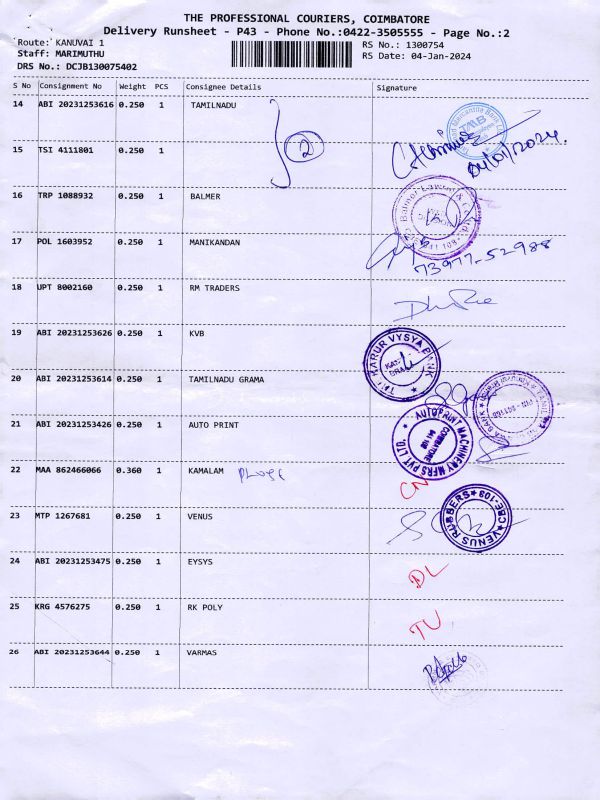 THE PROFESSIONAL COURIERS, COIMBATORE
Delivery Runsheet - P43 - Phone No.:0422-3505555 - Page No.:2
Route: KANUVAI 1
RS No.: 1300754
Staff: MARIMUTHU
RS Date: 04-Jan-2024
DRS No.: DCJB130075402
S No Consignment No Weight PCS Consignee Details Signature
14 ABI 20231253616 0.250 1 TAMILNADU
2
04/01/2024.
15 TSI 4111801 0.250 1
16 TRP 1088932 0.250 1 BALMER
17 POL 1603952 0.250 1 MANIKANDAN
73977-52988
18 UPT 8002160 0.250 1 RM TRADERS
19 ABI 20231253626 0.250 1 KVB
KARUR VYSYA BANK
20 ABI 20231253614 0.250 1 TAMILNADU GRAMA
21 ABI 20231253426 0.250 1 AUTO PRINT
AUTOPRINT MACHINERY MFRS PVT. LTD.
COIMBATORE
22 MAA 862466066 0.360 1 KAMALAM
CN
23 MTP 1267681 0.250 1 VENUS
VENUS RUBBERS CBE-109
24 ABI 20231253475 0.250 1 EYSYS
DL
25 KRG 4576275 0.250 1 RK POLY
TU
26 ABI 20231253644 0.250 1 VARMAS